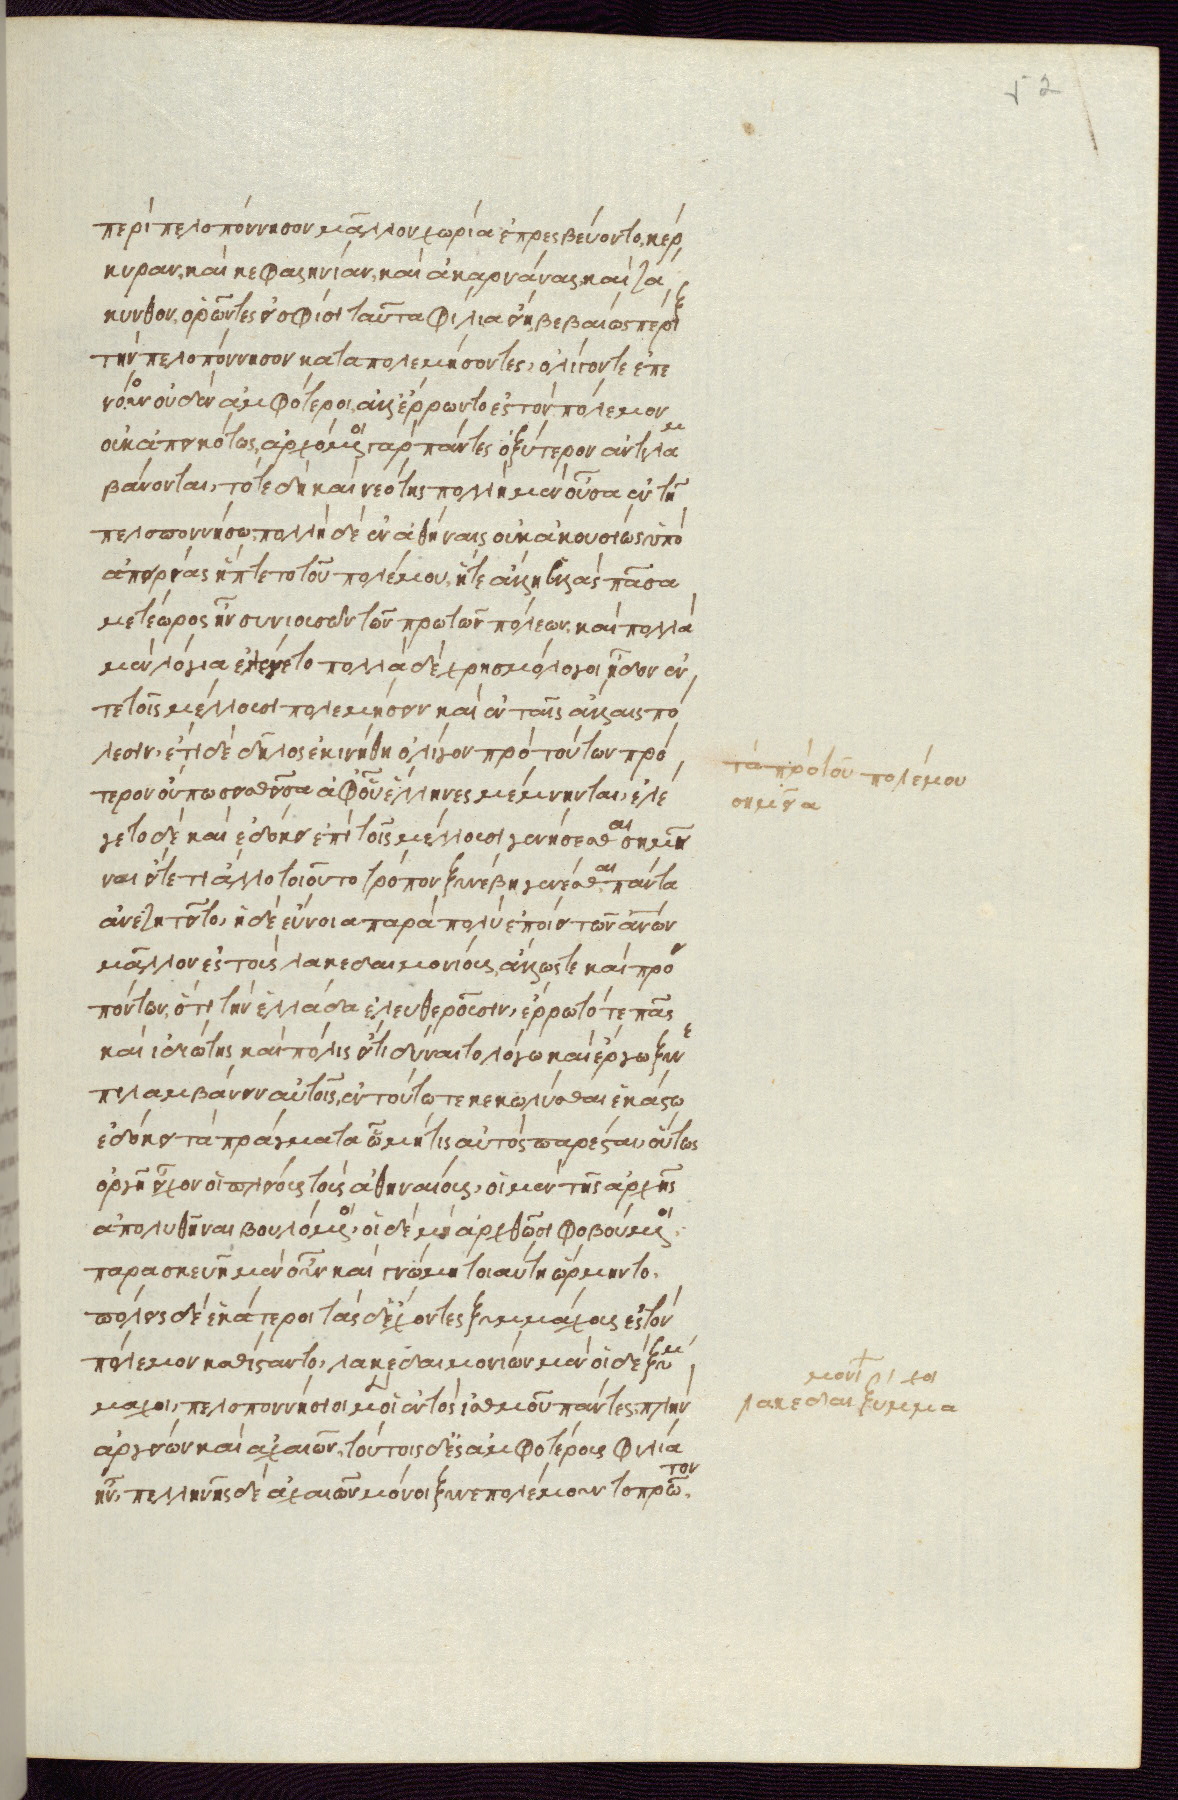 52
περὶ πελοπόννησον μᾶλλον χωρία ἐπρεσβεύοντο, κέρ
κυραν, καὶ κεφαλληνίαν, καὶ ἀκαρνάνας, καὶ ζά
κυνθον, ὁρῶντες εἰ σφίσι ταῦτα φίλια εἴη βεβαίως πέριξ
τὴν πελοπόννησον καταπολεμήσοντες, ὀλίγον τε ἐπε
νόουν οὐδὲν ἀμφότεροι, ἀλλ' ἔρρωντο ἐς τὸν πόλεμον
οὐκ ἀπεικότως, ἀρχόμενοι γὰρ πάντες ὀξύτερον ἀντιλαμ
βάνονται, τότε δὴ καὶ νεότης πολλὴ μὲν οὖσα ἐν τῇ
πελοποννήσῳ, πολλὴ δὲ ἐν ἀθήναις οὐκ ἀκουσίως ὑπὸ
ἀπειρίας ἥπτετο τοῦ πολέμου, ἥτε ἄλλη ἑλλὰς πᾶσα
μετέωρος ἦν συνιουσῶν τῶν πρώτων πόλεων, καὶ πολλὰ
μὲν λόγια ἐλέγετο πολλὰ δὲ χρησμολόγοι ᾖδον ἐν
τε τοῖς μέλλουσι πολεμήσειν καὶ ἐν ταῖς ἄλλαις πό
λεσιν, ἔτι δὲ δῆλος ἐκινήθη ὀλίγον πρὸ τούτων πρό
τερον οὔπω σεισθεῖσα ἀφ' οὗ ἕλληνες μέμνηνται, ἐλέ
γετο δὲ καὶ ἐδόκει ἐπὶ τοῖς μέλλουσι γενήσεσθαι σημῆ
ναι εἴτε τι ἄλλο τοιοῦτο τρόπον ξυνέβη γενέσθαι πάντα
ἀνεζητεῖτο, ἡ δὲ εὔνοια παρὰ πολὺ ἐποίει τῶν ἀνων
μᾶλλον ἐς τοὺς λακεδαιμονίους, ἄλλως τε καὶ προει
πόντων, ὅτι τὴν ἑλλάδα ἐλευθεροῦσιν, ἔρρωτό τε πᾶς
καὶ ἰδιώτης καὶ πόλις εἴ τι δύναιτο λόγῳ καὶ ἔργῳ ξυνε
πιλαμβάνειν αὐτοῖς, ἐν τούτῳ τε κεκωλύσθαι ἑκάστῳ
ἐδόκει τὰ πράγματα ᾧ μή τις αὐτὸς παρέσται, οὕτως
ὀργῇ εἶχον οἱ πλείους τοὺς ἀθηναίους, οἱ μὲν τῆς ἀρχῆς
ἀπολυθῆναι βουλόμενοι, οἱ δὲ μὴ ἀρχθῶσι φοβούμενοι.
παρασκευῇ μὲν οὖν καὶ γνώμῃ τοιαύτῃ ὥρμηντο.
πόλεις δὲ ἑκάτεροι τάσδε ἔχοντες ξυμμάχους ἐς τὸν
πόλεμον καθίσταντο, λακεδαιμονίων μὲν οἵδε ξύμ
μαχοι, πελοποννήσιοι μὲν οἱ ἐντὸς ἰσθμοῦ πάντες, πλὴν
ἀργείων καὶ ἀχαιῶν, τούτοις δὲ ἐς ἀμφοτέρους φιλία
ἦν, πελληνῆς δὲ ἀχαιῶν μόνοι ξυνεπολέμουν τὸ πρῶτον.
τὰ πρὸ τοῦ πολέμου
σημεῖα
λακεδαιμονίων ξύμμαχοι